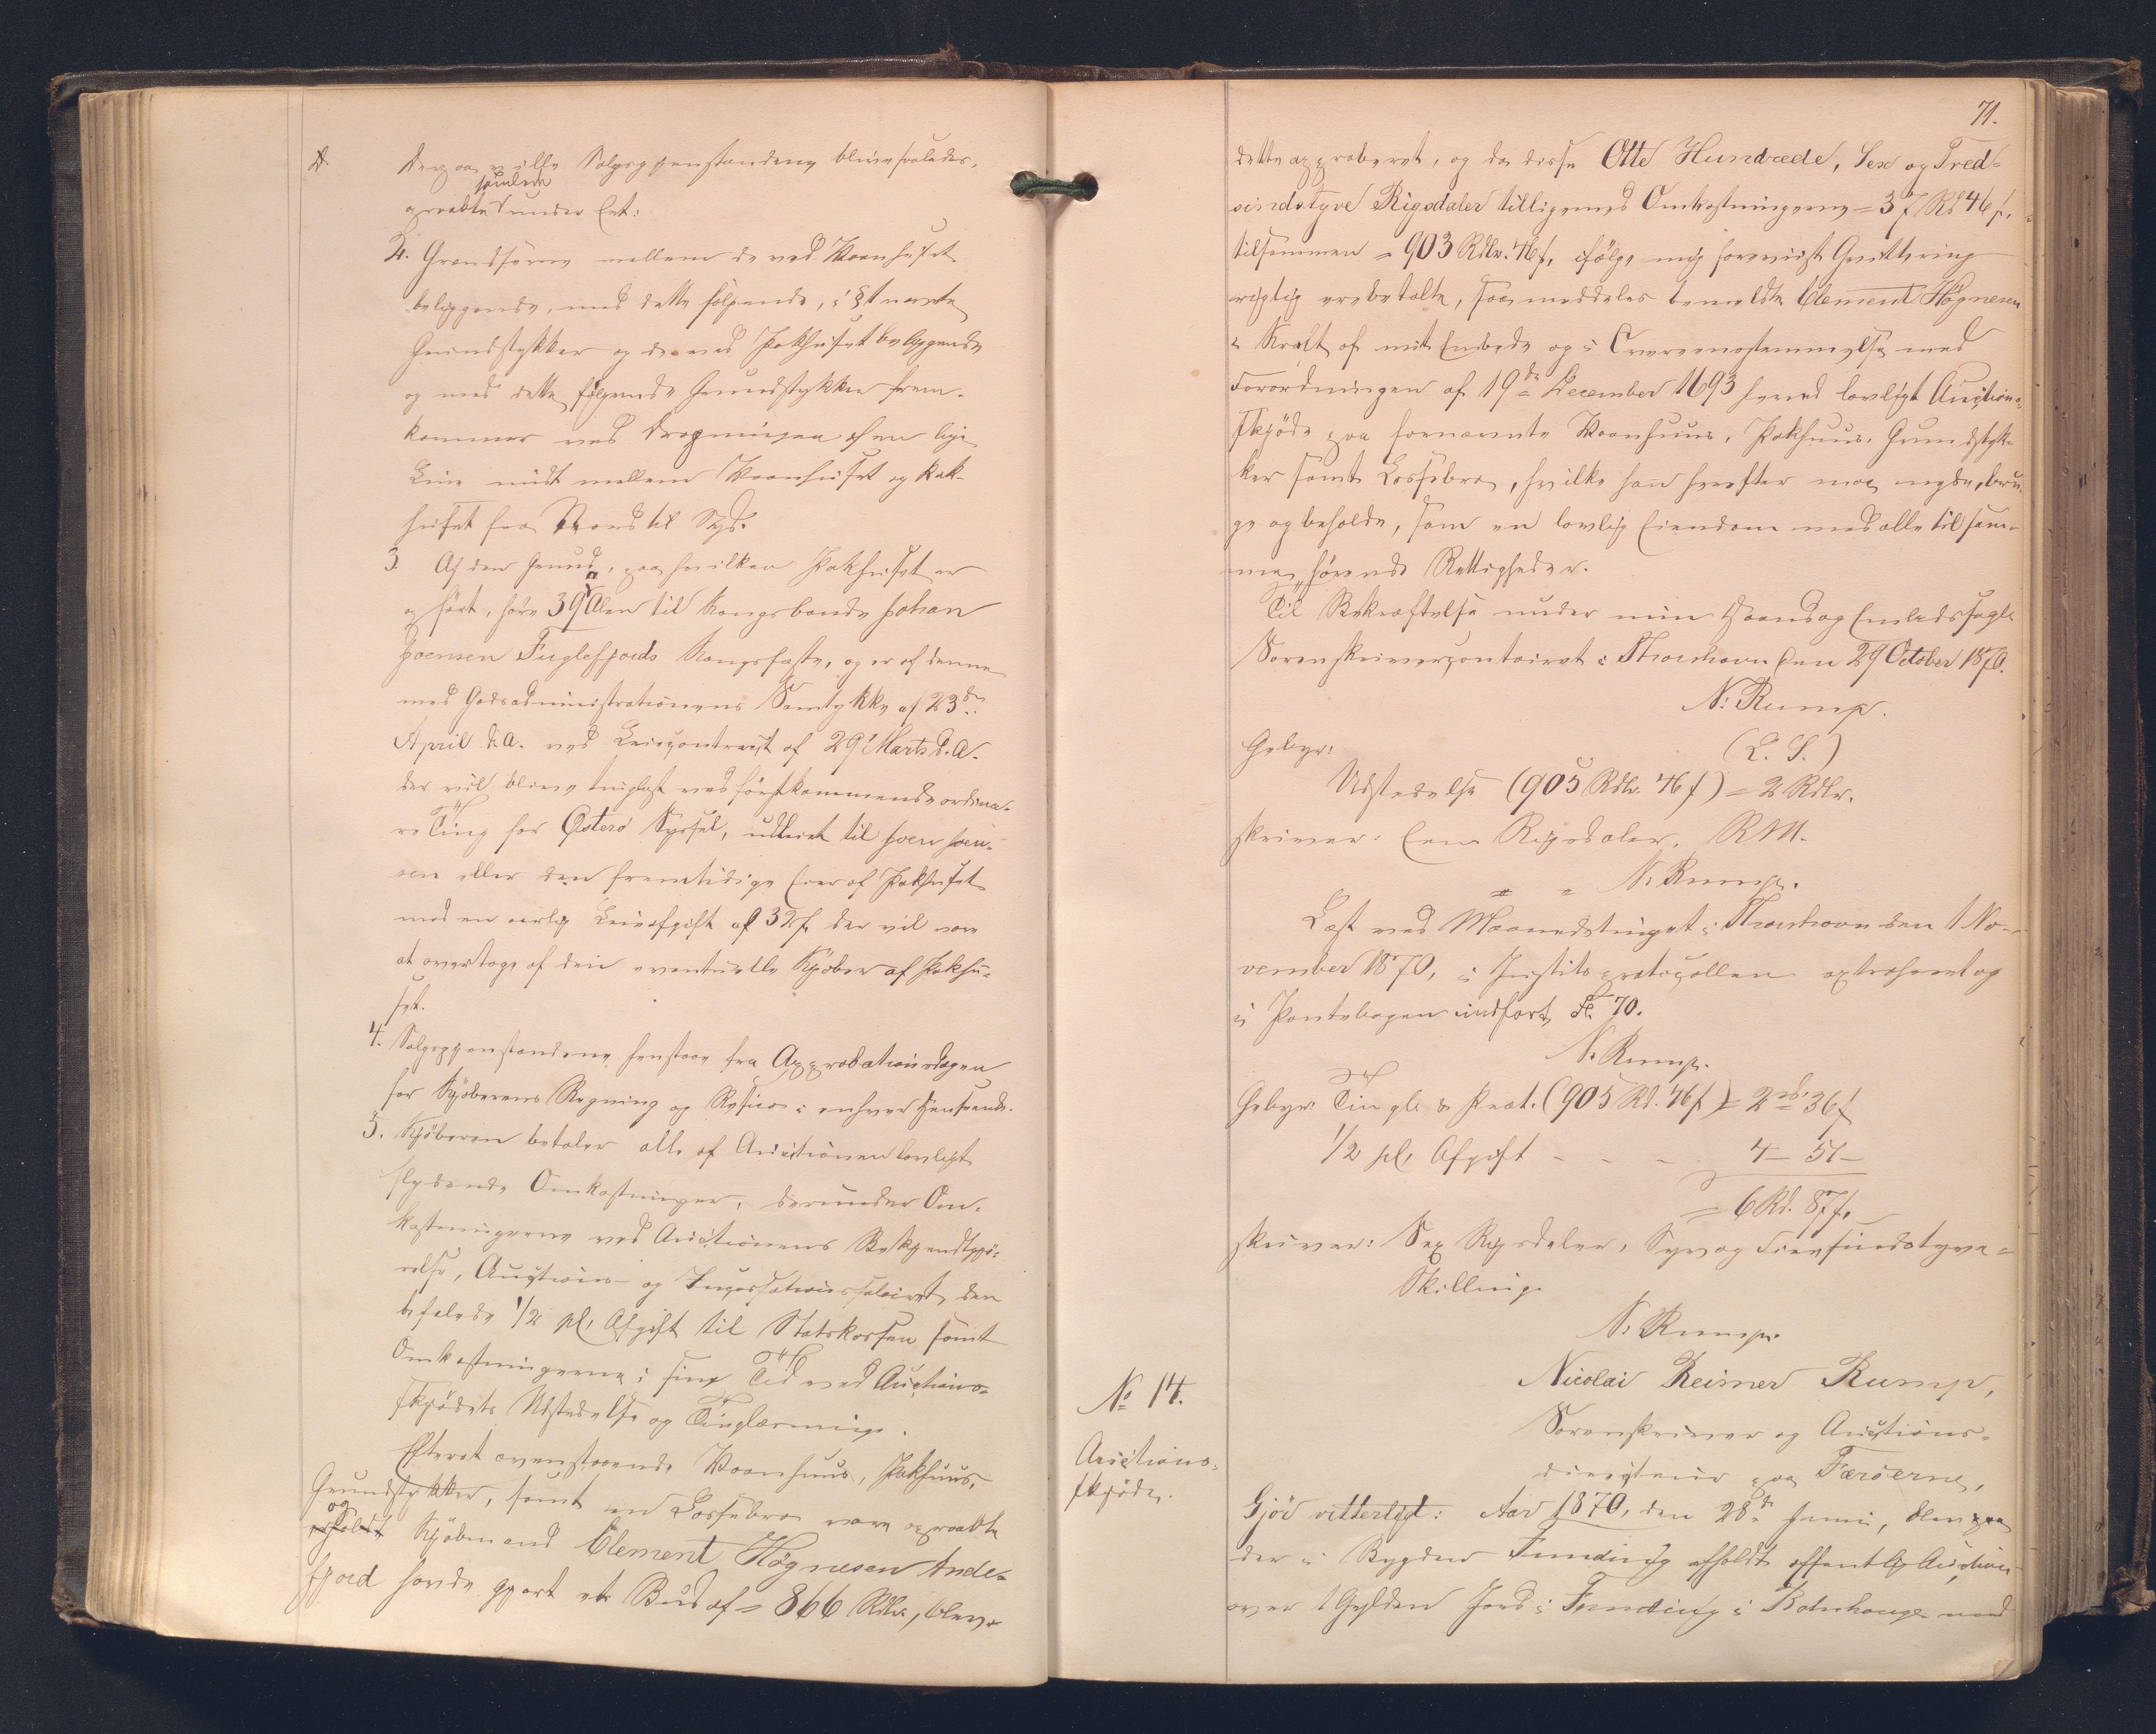 Derpaa ville Salgsgjenstandene blive saaledes
samlede
opraabte under Eet:
2. Grændserne mellem de ved Vaanhuset
beliggende, med dette følgende, i § 1 nævnte
Grundstykker og de ved Pakhuset beliggende
og med dette følgende Grundstykker frem-
kommer ved Dragningen af en lige
Linie midt mellem Vaanhuset og Pak-
huset fra Nord til Syd.
3. Af den Grund, paa hvilken Pakhuset er
opført, høre 39 □ Alen til Kongsbonde Johan
Joensen Fuglefjords Kongsfæste, og er af denne
med Godsadministrationens Samtykke af 23de
April d. A. ved Leiecontract af 29 Marts d. A.
der vil blive tinglæst ved førstkommende ordinæ-
re Ting for Østerø Syssel, udleiet til Joen Joen-
sen eller den fremtidige Eier af Pakhuset
mod en aarlig Leieafgift af 32 ß der vil være
at overtage af den eventuelle Kjøber af Pakhu-
set.
4. Salgsgjenstandene henstaae fra Approbationsdagen
for Kjøberens Regning og Risico i enhver Henseende.
5. Kjøberen betaler alle af Auctionen lovligt
flydende Omkostninger, derunder Om-
kostningerne ved Auctionens Bekjendtgjø-
relse, Auctions- og Incassationssalairet, den
befalede 1/2 pCt. Afgift til Statskassen samt
Omkostningerne i sin Tid ved Auctions-
skjødets Udstedelse og Tinglæsning.
Efterat ovenstaaende Vaanhuus, Pakhuus,
Grundstykker, samt en Lossebro vare opraabte
og
Kjøbmand Clement Høgnesen Ande-
fjord havde gjort et Bud af = 866 Rdlr., blev
71.
dette approberet, og da disse Otte Hundrede, Sex og Tred-
sindstyve Rigsdaler tilligemed Omkostningerne = 37 Rd 46 ß,
tilsammen = 903 Rdlr. 46 ß, ifølge mig foreviist Qvittering
rigtig ere betalte, saa meddeles bemeldte Clement Høgnesen
i Kraft af mit Embede og i Overeensstemmelse med
Forordningen af 19de December 1693 herved lovligt Auctions-
skjøde paa fornævnte Vaanhuus, Pakhuus, Grundstyk-
ker samt Lossebro, hvilke han herefter maa nyde, bru-
ge og beholde, som en lovlig Eiendom med alle til sam-
me hørende Rettigheder.
Til Bekræftelse under min Haand og Embedssegl.
Sorenskrivercontoiret i Thorshavn den 29 October 1870.
N. Rump.
Gebyr:
(L. S.)
Udstedelse (905 Rdlr. 46 ß) = 2 Rdlr.
skriver: Een Rigsdaler, RM.
N. Rump.
Læst ved Maanedstinget i Thorshavn den 1 No-
vember 1870, i Justitsprotocollen extraheret og
i Pantebogen indført Fol. 70.
N. Rump.
Gebyr: Tingl. & Prot. (905 Rd. 46 ß) = 2 rd. 36 ß
1/2 pCt. Afgift - - - 4 - 51 -
= 6 Rd. 87 ß.
skriver: Sex Rigsdaler, Syv og Fiirsindstyve
Skilling.
N. Rump.
No 14.
Auctions-
skjøde.
Nicolai Reimer Rump,
Sorenskriver og Auctions-
directeur paa Færøerne,
Gjør vitterligt: Aar 1870, den 28de Juni, blev
der i Bygden Funding afholdt offentlig Auction
over 1 Gylden Jord i Funding i Bolnhauge med